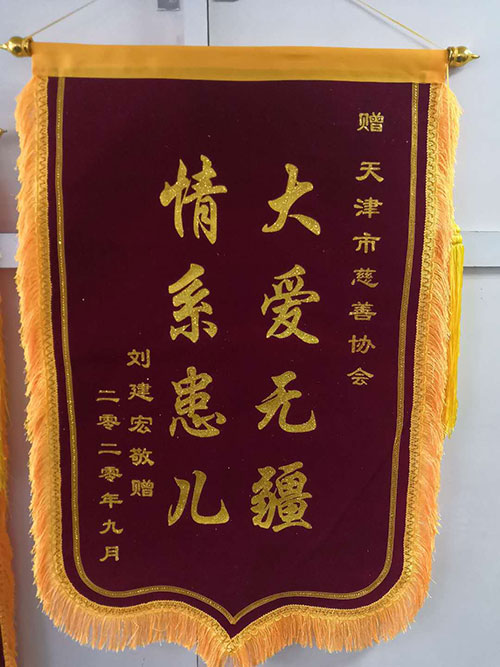 赠 天津市慈善协会
大爱无疆
情系患儿
刘建宏敬赠
二零二零年九月